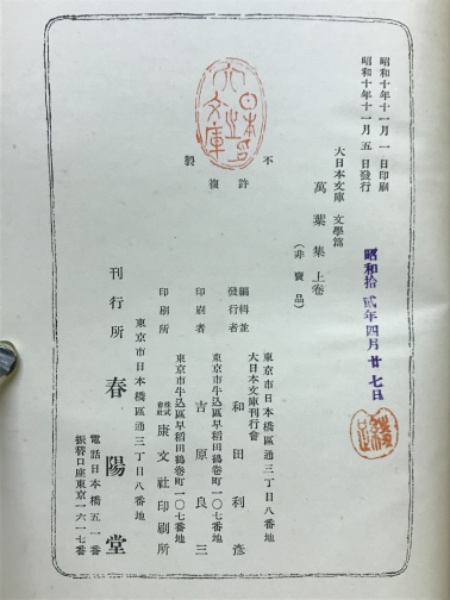 昭和十年十一月一日印刷
昭和十年十一月五日發行
昭和拾貳年四月廿七日
大日本文庫 文學篇
萬葉集 上卷
(非賣品)
不許複製
編輯並發行者
東京市日本橋區通三丁目八番地
大日本文庫刊行會
和田利彥
印刷者
東京市牛込區早稻田鶴卷町一〇七番地
吉原良三
印刷所
東京市牛込區早稻田鶴卷町一〇七番地
株式會社 康文社印刷所
東京市日本橋區通三丁目八番地
刊行所 春陽堂
電話日本橋五一番
振替口座東京一六一七番